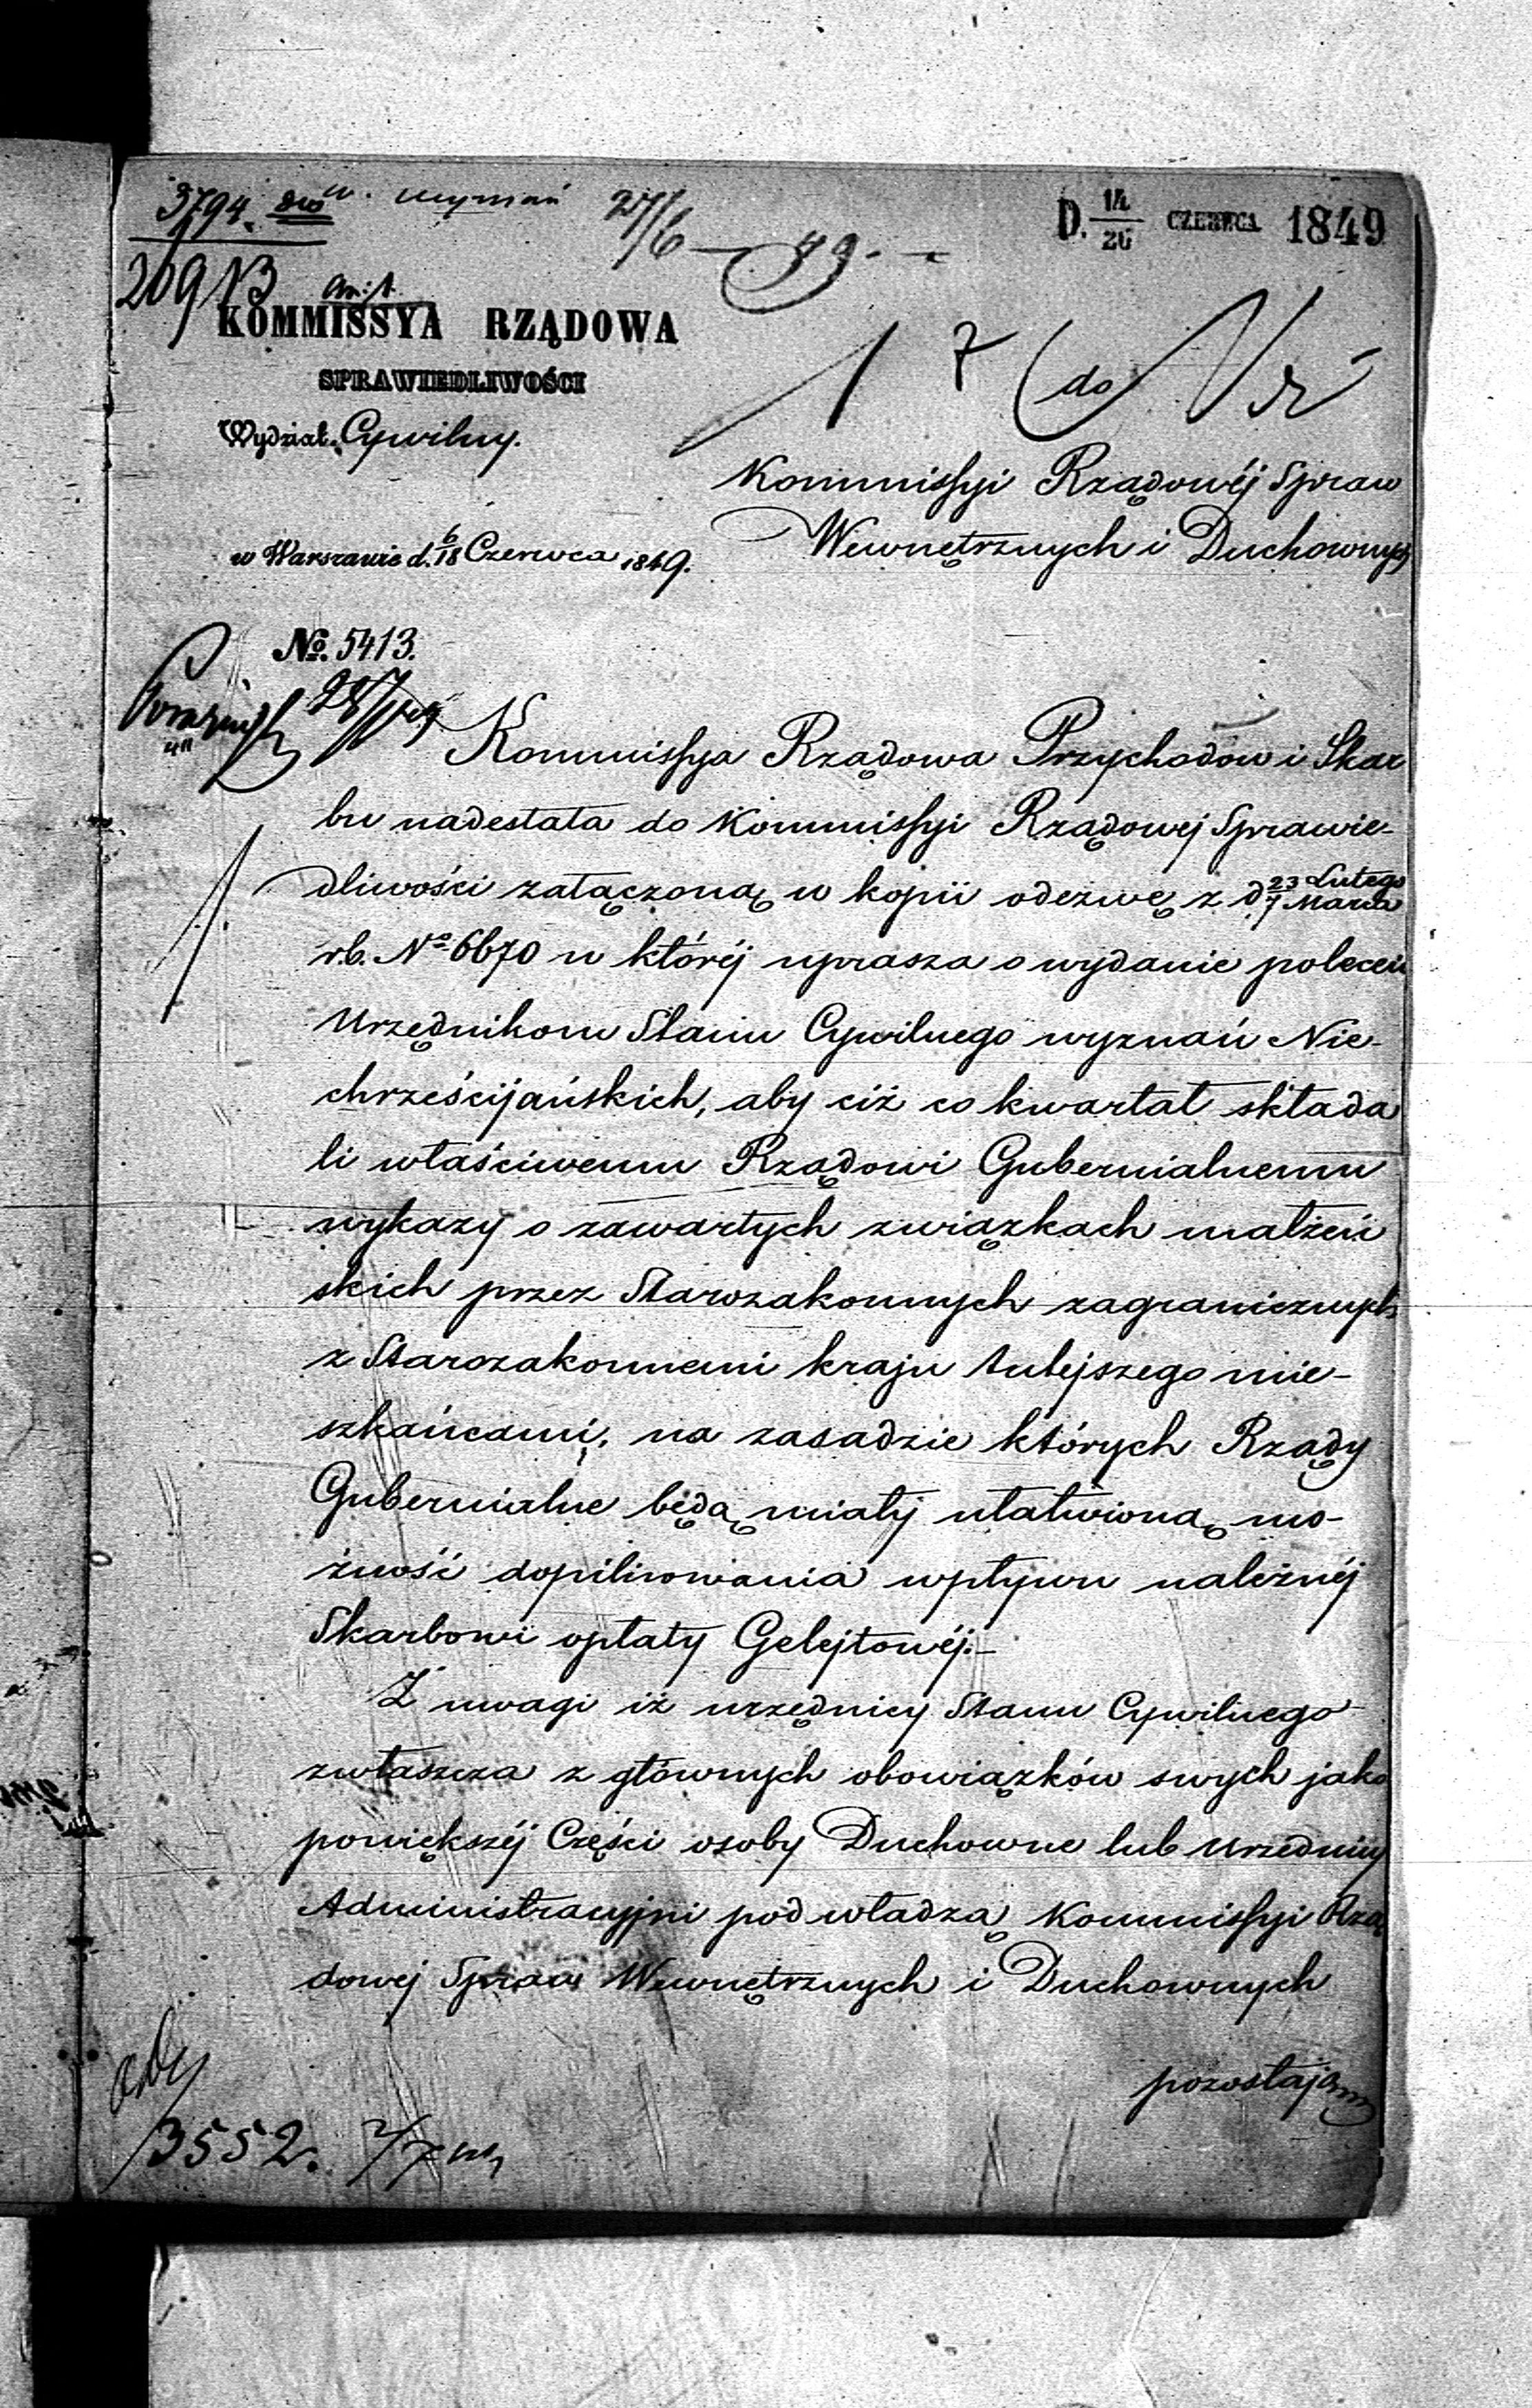 3794. 27/6 49.
D. 14/26 CZERWCA 1849
KOMMISSYA RZĄDOWA
SPRAWIEDLIWOŚCI
Wydział Cywilny.
do
Kommissyi Rządowéj Spraw
Wewnętrznych i Duchownych
w Warszawie d. 6/18 Czerwca 1849.
No. 5413.
Kommissya Rządowa Przychodów i Skar
bu nadesłała do Kommissyi Rządowej Sprawie-
dliwości załączoną w kopii odezwę z d 23 Lutego / 7 Marca
r.b. No 6670 w któréj uprasza o wydanie poleceń
Urzędnikom Stanu Cywilnego wyznań Nie-
chrześcijańskich, aby ciż co kwartał składa
li właściwemu Rządowi Gubernialnemu
wykazy o zawartych związkach małżeń
skich przez Starozakonnych zagranicznych
z Starozakonnemi kraju tutejszego mie-
szkańcami, na zasadzie których Rządy
Gubernialne będą miały ułatwioną mo-
żność dopilnowania wpływu należnéj
Skarbowi opłaty Gelejtowéj.-
Z uwagi iż urzędnicy Stanu Cywilnego
zwłaszcza z głównych obowiązków swych jako
powiększéj Części osoby Duchowne lub Urzędnicy
Administracyjni pod władzą Kommissyi Rzą
dowej Spraw Wewnętrznych i Duchownych
pozostają
3552.